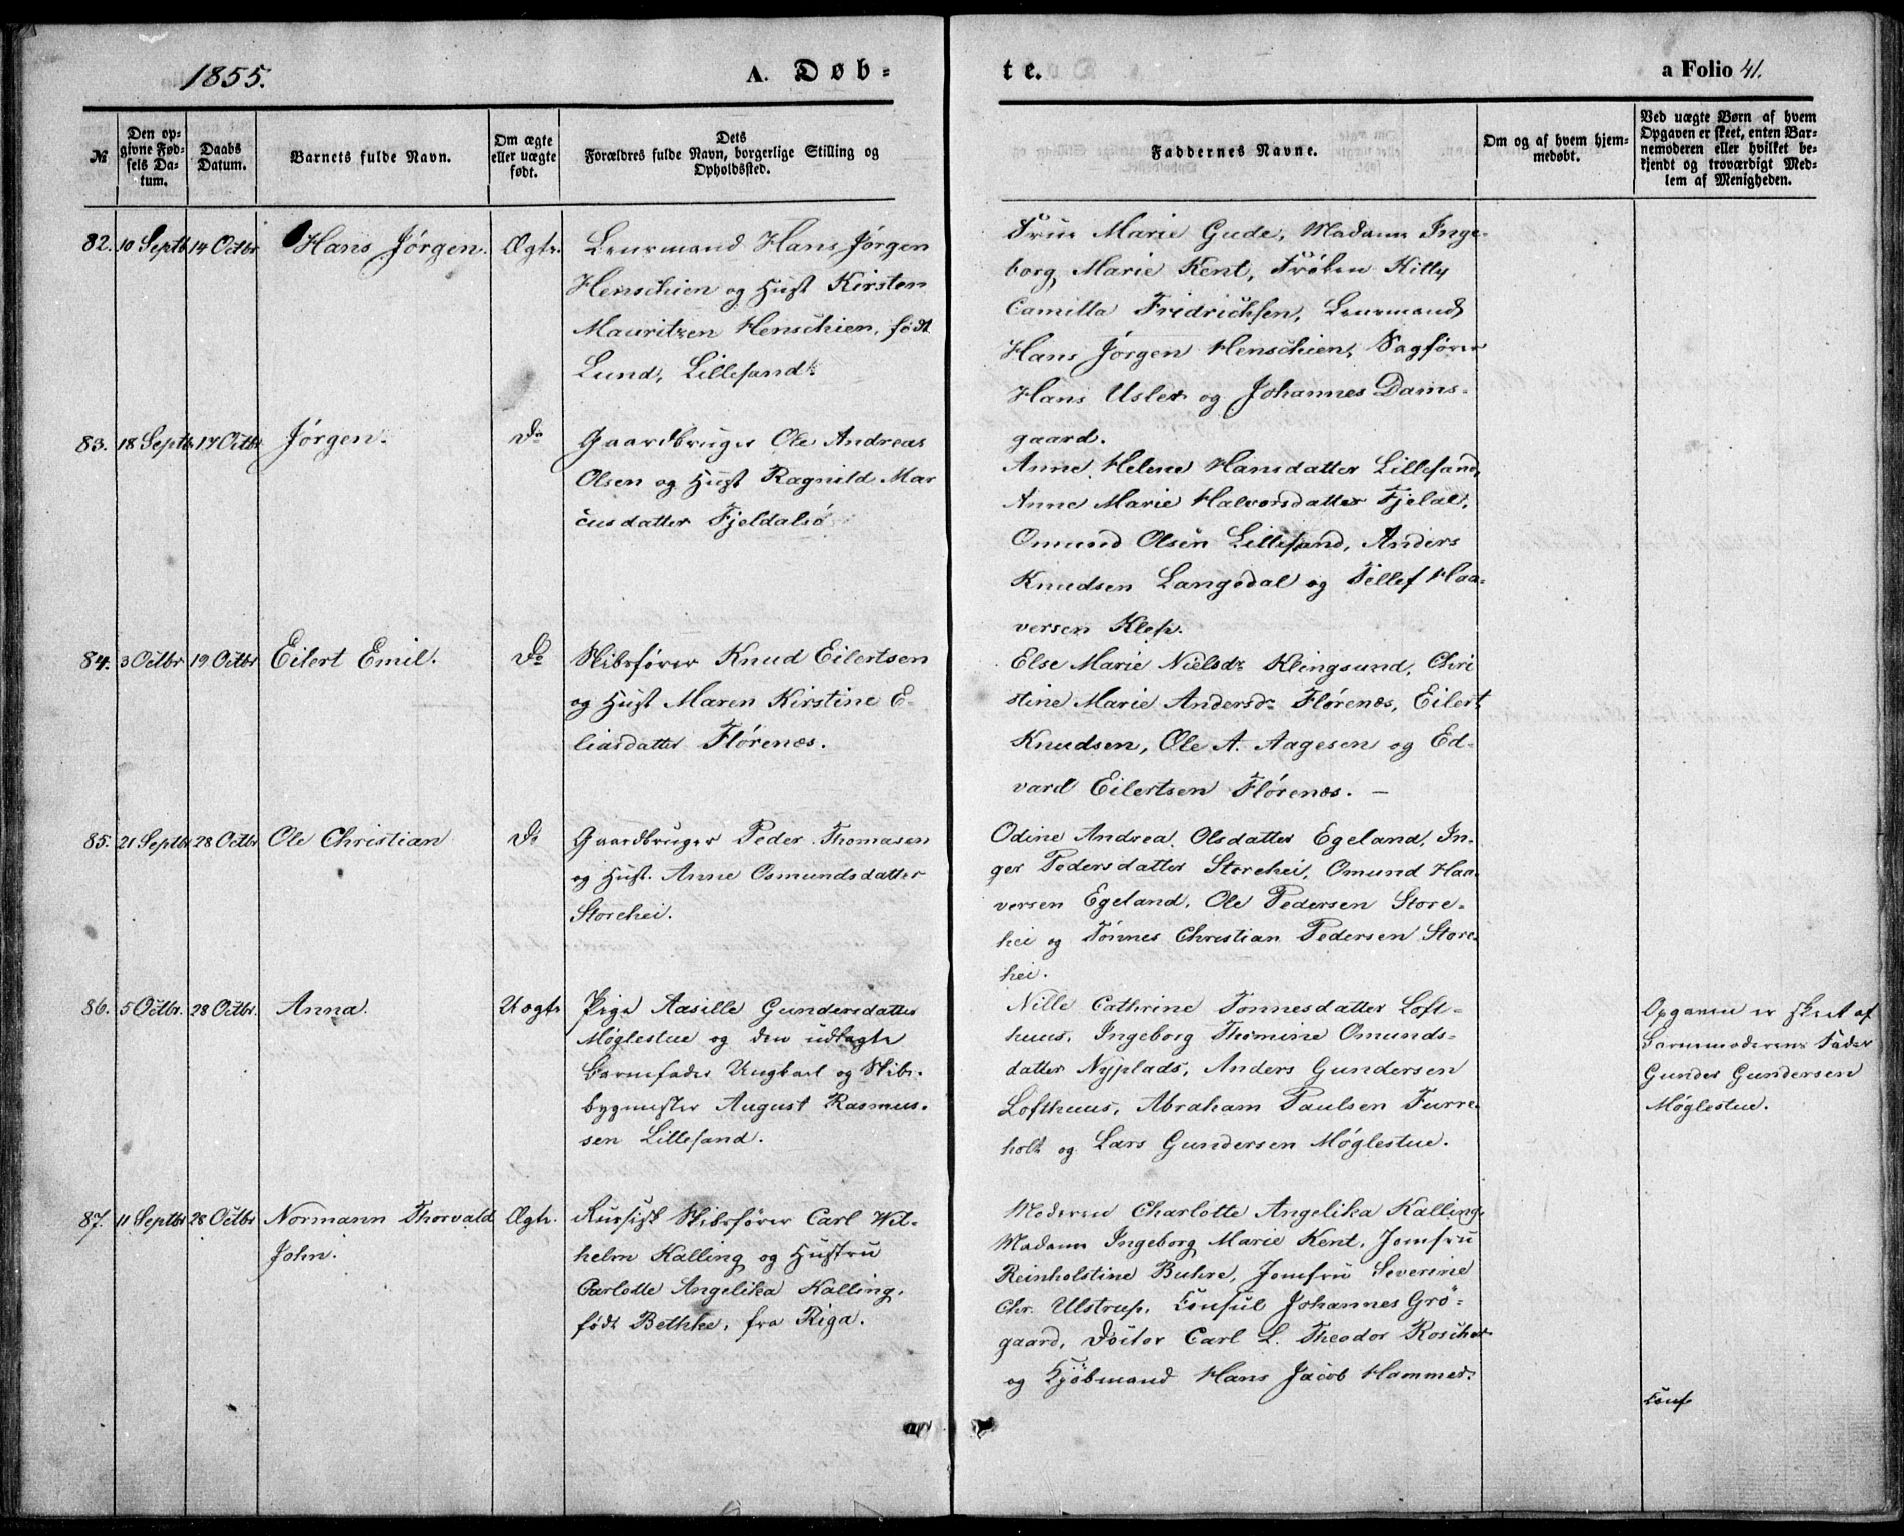 1855.
A. Døb-
te.
a Folio 41.
№
Den op-
givne Fød-
sels Da-
tum.
Daabs
Datum.
Barnets fulde Navn.
Om ægte
eller uægte
født.
Dets
Forældres fulde Navn, borgerlige Stilling og
Opholdssted.
Faddernes Navne.
Om og af hvem hjem-
medøbt.
Ved uægte Børn af hvem
Opgaven er skeet, enten Bar-
nemoderen eller hvilket be-
kjendt og troværdigt Med-
lem af Menigheden.
82. 10 Septb 14 Octbr Hans Jørgen. Ægte.
Lensmand Hans Jørgen
Henschien og Hust Kirsten
Mauritzen Henschien, født
Lund, Lillesand.
Frue Marie Gude, Madam Inge-
borg Marie Kent, Frøken Kitty
Camilla Fridrichsen, Lensmand
Hans Jørgen Henschien, Sagfører
Hans Usler og Johannes Dams-
gaard.
83. 18 Septb 17 Octbr Jørgen. Do
Gaardbruger Ole Andreas
Olsen og Hust Ragnild Mar
cusdatter Fjeldalsø
Anne Helene Hansdatter Lillesand,
Anne Marie Halvorsdatter Fjelal,
Omund Olsen Lillesand, Anders
Knudsen Langedal og Tellef Haa-
versen Klep.
84. 3 Octbr 19 Octbr Eilert Emil. Do
Skibsfører Knud Eilertsen
og Hust Maren Kirstine E-
liasdatter Flørenæs.
Else Marie Nielsdr Klingsund, Chri
stine Marie Andersdr Flørenæs, Eilert
Knudsen, Ole A. Aagesen og Ed-
vard Eilertsen Flørenæs. —
85. 21 Septbr 28 Octbr Ole Christian Do
Gaardbruger Peder Thomasen
og Hust. Anne Osmundsdatter
Storehei.
Odine Andrea Olsdatter Egeland, In-
ger Pedersdatter Storehei, Omund Haa-
versen Egeland, Ole Pedersen Store-
hei og Tønnes Christian Pedersen Store-
hei.
86. 5 Octbr. 28 Octbr. Anna. Uægte
Pige Aasille Gundersdatter
Møglestue og den udlagte
Barnefader Ungkarl og Skibs-
bygmester August Rasmus-
sen Lillesand.
Nille Cathrine Tonnesdatter Loft-
huus, Ingeborg Thomine Omunds-
datter Nyplads, Anders Gundersen
Lofthuus, Abraham Paulsen Furre-
holt og Lars Gundersen Møglestue.
Opgaven er skeet af
Barnemoderens Fader
Gunder Gundersen
Møglestue.
87. 11 Septbr 28 Octbr Normann Thorvald Ægte.
John.
Russisk Skibsfører Carl Wil-
helm Kalling og Hustru
Carlotte Angelika Kalling,
født Bethke, fra Riga.
Moderen Charlotte Angelika Kalling,
Madam Ingeborg Marie Kent, Jomfru
Reinholstine Buhre, Jomfru Severine
Chr. Ulstrup, Consul Johannes Grø-
gaard, Doctor Carl L. Theodor Roscher
og Kjøbmand Hans Jacob Hammer.
Conf